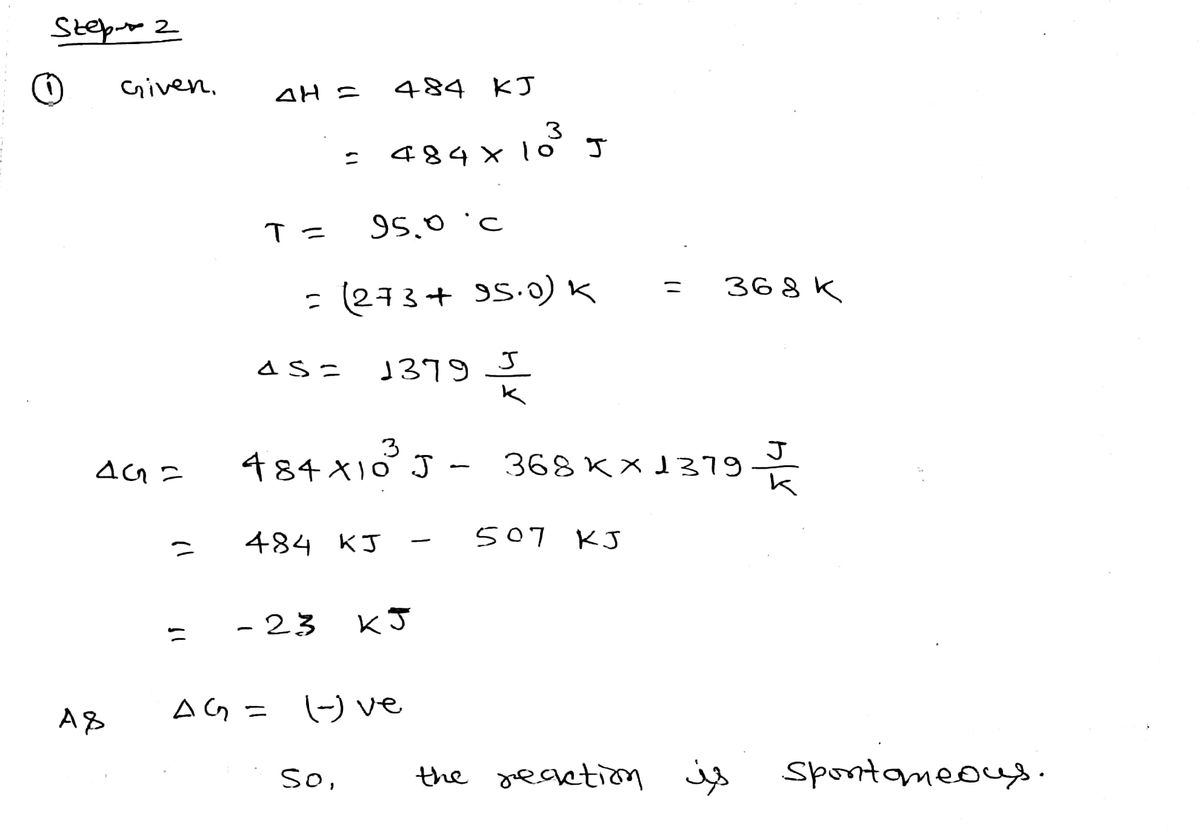 Step-2
① Given. ΔH = 484 KJ
= 484 × 10³ J
T = 95.0 °C
= (273 + 95.0) K = 368 K
ΔS = 1379 J/K
ΔG = 484 × 10³ J - 368 K × 1379 J/K
= 484 KJ - 507 KJ
= -23 KJ
As ΔG = (-) ve
So, the reaction is spontaneous.